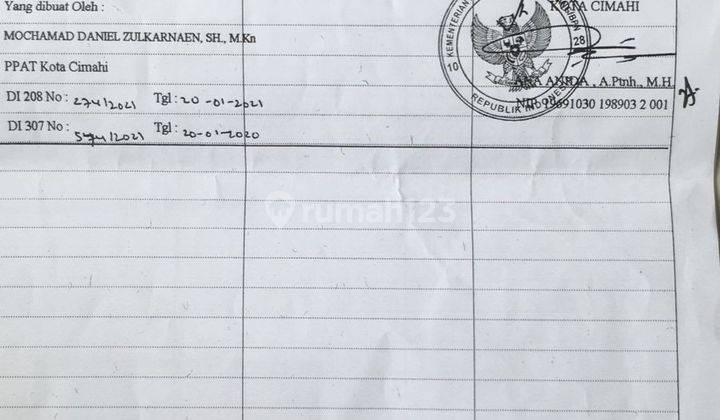 Yang dibuat Oleh :
KOTA CIMAHI
MOCHAMAD DANIEL ZULKARNAEN, SH., M.Kn
PPAT Kota Cimahi
, A.Ptnh., M.H
DI 208 No : 274/2021 Tgl : 20-01-2021
691030 198903 2 001
DI 307 No : 574/2021 Tgl : 20-01-2020
KEMENTERIAN
10
28
REPUBLIK INDONESIA
rumah123